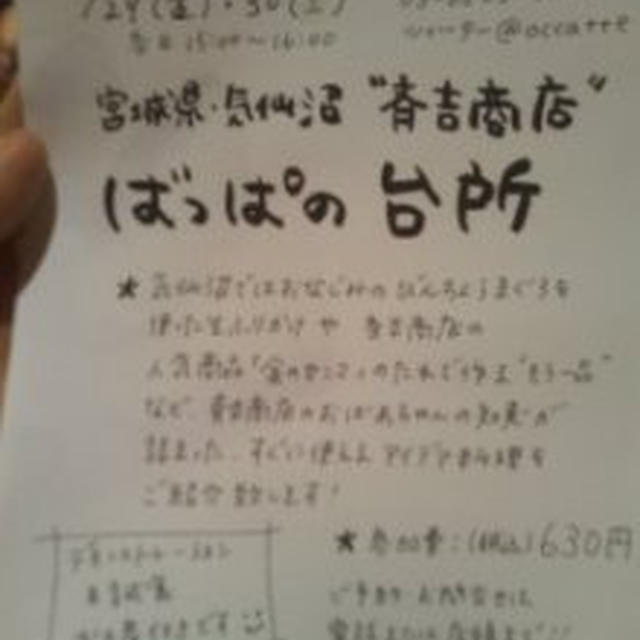 /29(金)・30(土)
各日15:00〜16:00
@occatte
宮城県・気仙沼 "斉吉商店"
ばっぱ°の 台所
★ 気仙沼ではおなじみの びんちょうまぐろを
使った生ふりかけ や 斉吉商店の
人気商品「金のさんま」のたれで作る"もう一品"
など 斉吉商店のおばあちゃんの知恵が
詰まった、すぐに使える アイデア料理を
ご紹介致します!
デモンストレーション
&試食
です
★ 参加費:(税込)630円
ご予約・お問合せは